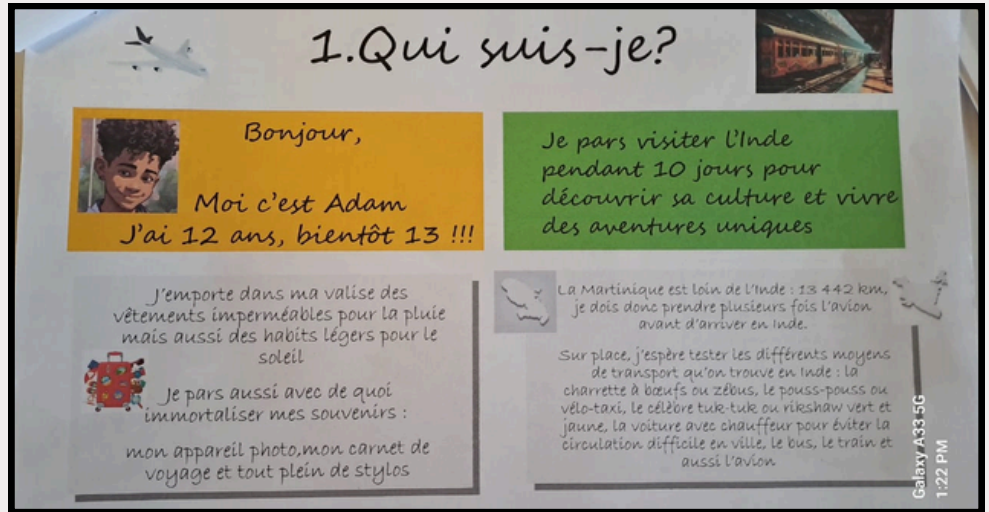 1.Qui suis-je?
Bonjour,
Moi c'est Adam
J'ai 12 ans, bientôt 13 !!!
Je pars visiter l'Inde
pendant 10 jours pour
découvrir sa culture et vivre
des aventures uniques
J'emporte dans ma valise des
vêtements imperméables pour la pluie
mais aussi des habits légers pour le
soleil
Je pars aussi avec de quoi
immortaliser mes souvenirs :
mon appareil photo,mon carnet de
voyage et tout plein de stylos
La Martinique est loin de l'Inde : 13 442 km,
je dois donc prendre plusieurs fois l'avion
avant d'arriver en Inde.
Sur place, j'espère tester les différents moyens
de transport qu'on trouve en Inde : la
charrette à bœufs ou zébus, le pouss-pouss ou
vélo-taxi, le célèbre tuk-tuk ou rikshaw vert et
jaune, la voiture avec chauffeur pour éviter la
circulation difficile en ville, le bus, le train et
aussi l'avion
Galaxy A33 5G
1:22 PM